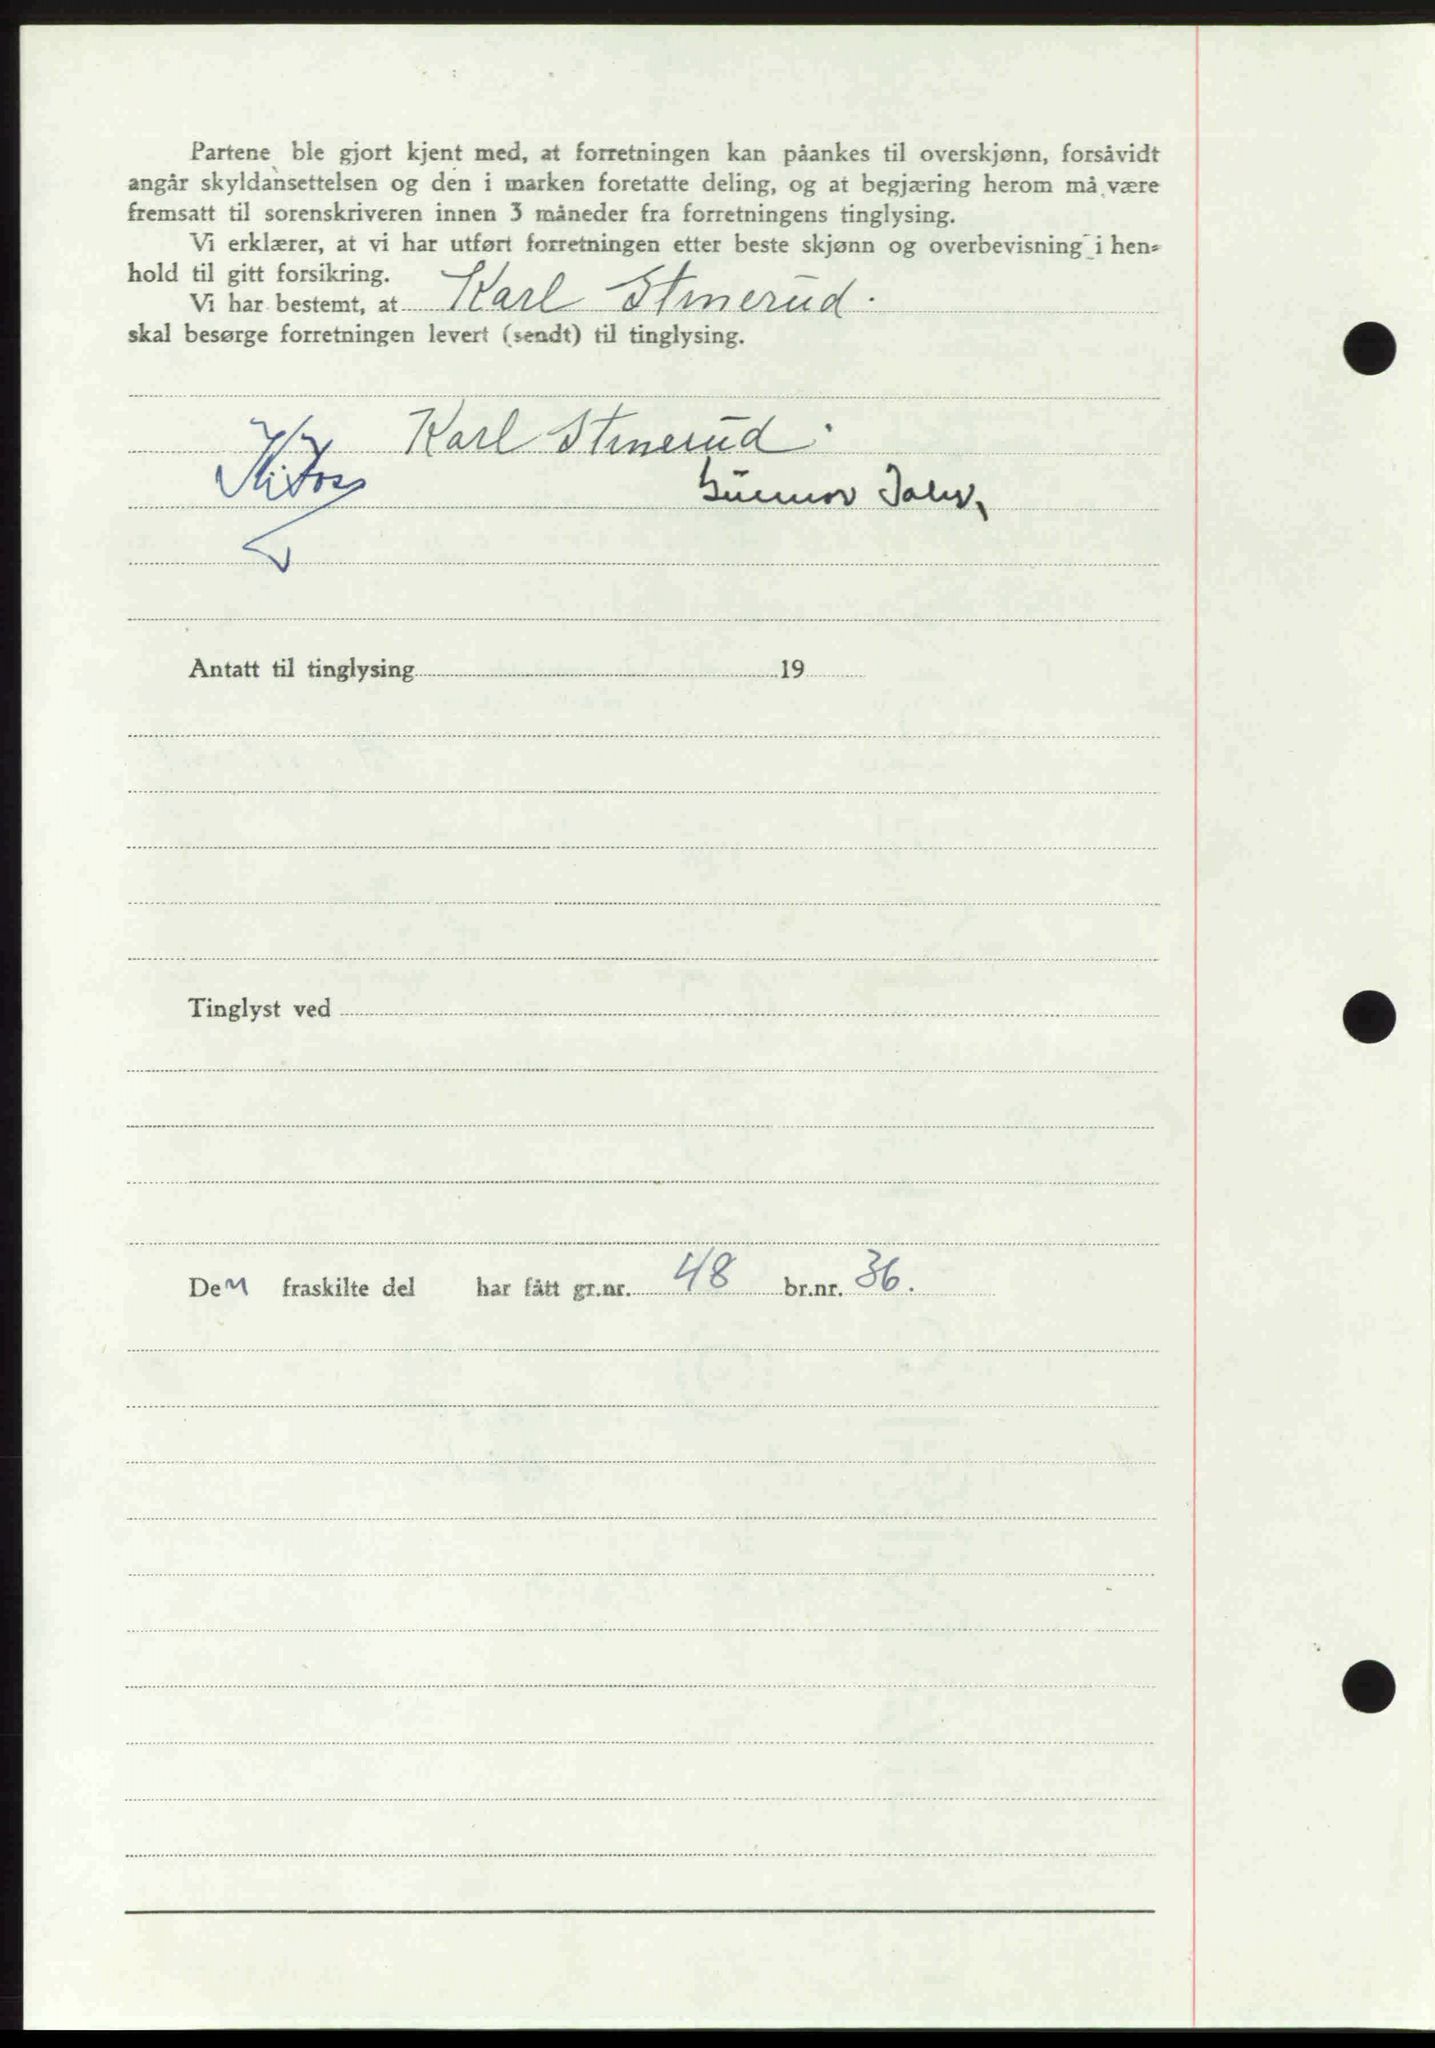 Partene ble gjort kjent med, at forretningen kan påankes til overskjønn, forsåvidt
angår skyldansettelsen og den i marken foretatte deling, og at begjæring herom må være
fremsatt til sorenskriveren innen 3 måneder fra forretningens tinglysing.
Vi erklærer, at vi har utført forretningen etter beste skjønn og overbevisning i hen-
hold til gitt forsikring.
Vi har bestemt, at Karl Stmerud.
skal besørge forretningen levert (sendt) til tinglysing.
Karl Stmerud.
Gunnar
Antatt til tinglysing 19
Tinglyst ved
Den fraskilte del har fått gr.nr. 48 br.nr. 36.